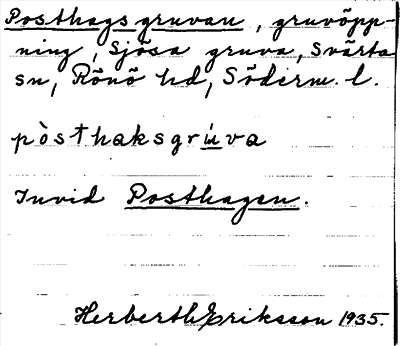 Posthagsgruvan, gruvöpp-
ning, Sjösa gruva, Svärta
sn, Rönö hd, Söderm. l.
pòsthaksgrúva
Invid Posthagen.
Herberth Eriksson 1935.